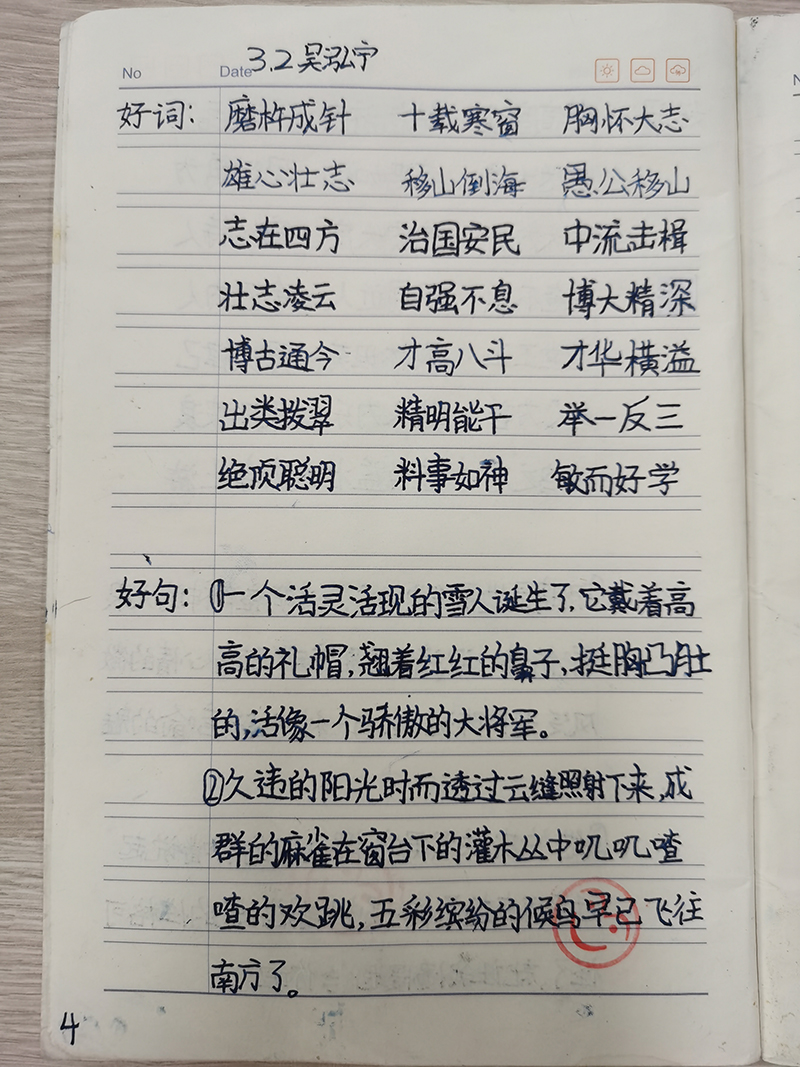 No Date 3.2 吴泓宁
好词: 磨杵成针 十载寒窗 胸怀大志
雄心壮志 移山倒海 愚公移山
志在四方 治国安民 中流击楫
壮志凌云 自强不息 博大精深
博古通今 才高八斗 才华横溢
出类拨翠 精明能干 举一反三
绝顶聪明 料事如神 敏而好学
好句: ①一个活灵活现的雪人诞生了,它戴着高
高的礼帽,翘着红红的鼻子,挺胸凸肚
的,活像一个骄傲的大将军。
②久违的阳光时而透过云缝照射下来,成
群的麻雀在窗台下的灌木丛中叽叽喳
喳的欢跳,五彩缤纷的候鸟早已飞往
南方了。
4